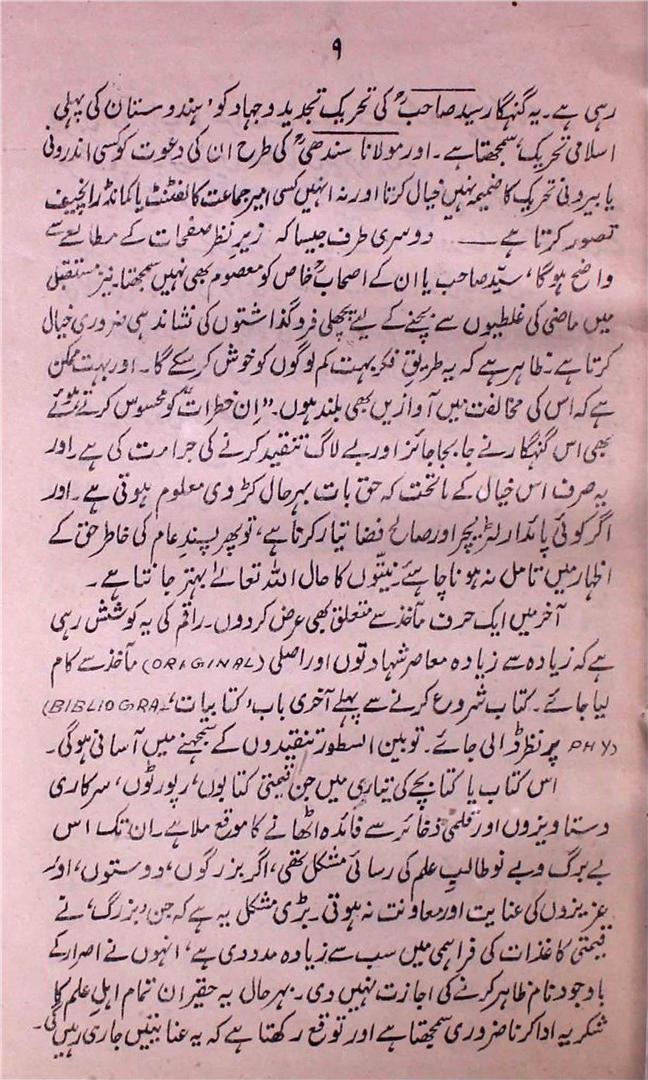 ۹
رہی ہے۔ یہ گنہگار سید صاحبؒ کی تحریک تجدید و جہاد کو، ہندوستان کی پہلی
اسلامی تحریک، سمجھتا ہے۔ اور مولانا سندھیؒ کی طرح ان کی دعوت کو کسی اندرونی
یا بیرونی تحریک کا ضمیمہ نہیں خیال کرتا اور نہ انہیں کسی امیر جماعت کا لفٹنٹ یا کمانڈر انچیف
تصور کرتا ہے ـــــ دوسری طرف جیسا کہ زیرِ نظر صفحات کے مطالعے سے
واضح ہوگا، سیّد صاحب یا ان کے اصحابؒ خاص کو معصوم بھی نہیں سمجھتا۔ نیز مستقبل
میں ماضی کی غلطیوں سے بچنے کے لیے پچھلی فروگذاشتوں کی نشاندہی ضروری خیال
کرتا ہے۔ ظاہر ہے کہ یہ طریقِ فکر بہت کم لوگوں کو خوش کر سکے گا۔ اور بہت ممکن
ہے کہ اس کی مخالفت میں آوازیں بھی بلند ہوں۔ اِن خطرات کو محسوس کرتے ہوئے
بھی اس گنہگار نے جا بجا جائز اور بے لاگ تنقید کرنے کی جرارت کی ہے۔ اور
یہ صرف اس خیال کے ماتحت کہ حق بات بہرحال کڑوی معلوم ہوتی ہے۔ اور
اگر کوئی پائدار لٹریچر اور صالح فضا تیار کرتا ہے، تو پھر پسندِ عام کی خاطر حق کے
اظہار میں تامل نہ ہونا چاہئے۔ نیتّوں کا حال اللہ تعالےٰ بہتر جانتا ہے۔
آخر میں ایک حرف مآخذ سے متعلق بھی عرض کر دوں۔ راقم کی یہ کوشش رہی
ہے کہ زیادہ سے زیادہ معاصر شہادتوں اور اصلی (ORIGINAL) مآخذ سے کام
لیا جائے۔ کتاب شروع کرنے سے پہلے آخری باب، کتابیات، (BIBLIOGRA-
PHY) پر نظر ڈالی جائے۔ تو بین السطور تنقیدوں کے سمجھنے میں آسانی ہوگی۔
اس کتاب یا کتابچے کی تیاری میں جن قیمتی کتابوں، رپورٹوں، سرکاری
دستاویزوں اور قلمی ذخائر سے فائدہ اٹھانے کا موقع ملا ہے۔ ان تک اس
بے برگ و بے نوا طالبِ علم کی رسائی مشکل تھی، اگر بزرگوں، دوستوں، اور
عزیزوں کی عنایت اور معاونت نہ ہوتی۔ بڑی مشکل یہ ہے کہ جن، بزرگ، نے
قیمتی کاغذات کی فراہمی میں سب سے زیادہ مدد دی ہے، انہوں نے اصرار کے
باوجود نام ظاہر کرنے کی اجازت نہیں دی۔ بہرحال یہ حقیر ان تمام اہلِ علم کا
شکریہ ادا کرنا ضروری سمجھتا ہے اور توقع رکھتا ہے کہ یہ عنایتیں جاری رہیں گی۔